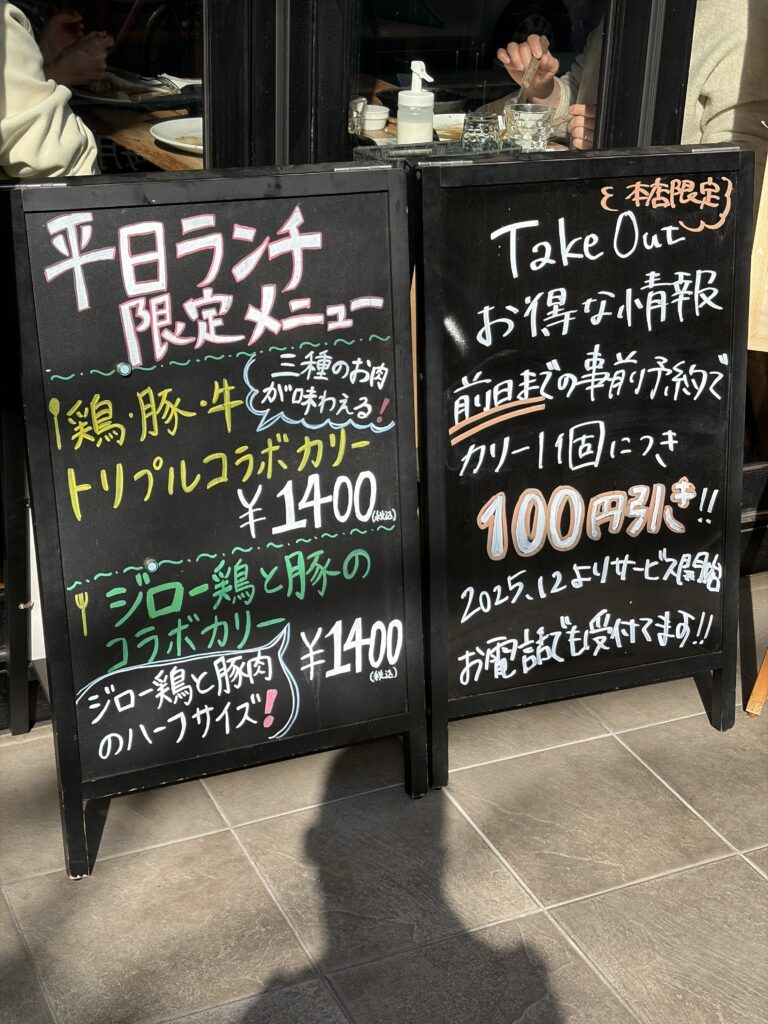 平日ランチ
限定メニュー
三種のお肉
が味わえる!
鶏・豚・牛
トリプルコラボカリー
¥1400(税込)
ジロー鶏と豚の
コラボカリー
¥1400
(税込)
ジロー鶏と豚肉
のハーフサイズ!
本店限定
Take Out
お得な情報
前日までの事前予約で
カリー1個につき
100円引き!!
2025.12よりサービス開始
お電話でも受付てます!!